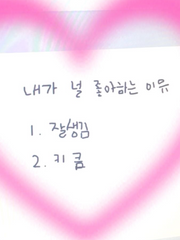 내가 널 좋아하는 이유
1. 잘생김
2. 키 큼